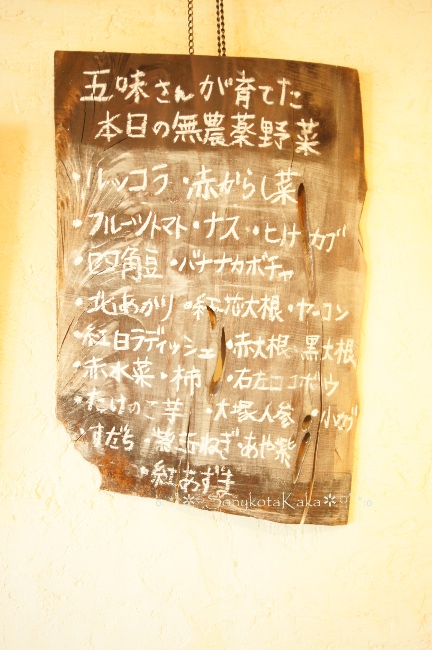 五味さんが育てた
本日の無農薬野菜
・ルッコラ・赤からし菜
・フルーツトマト・ナス・ヒげカブ
・四角豆・バナナカボチャ
・北あかり・紅芯大根・ヤーコン
・紅白ラディッシュ・赤大根 黒大根
・赤水菜・柿・右左ゴボウ
・たけのこ芋・大塚人参・小カブ
・すだち・ねぎ・あや紫
・紅あずま
SongkotaKaka